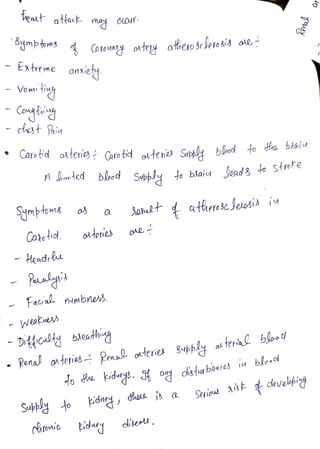 heart attack may occur.
Symptoms of Coronary artery atherosclerosis are :-
- Extreme anxiety.
- Vomiting
- Coughing
- chest Pain
• Carotid arteries :- Carotid arteries Supply blood to the brain
A limited blood Supply to brain leads to stroke
Symptoms as a result of atherosclerosis in
Carotid arteries are :-
- Headche
- Paralysis
- Facial numbness.
- Weakness
- Difficulty breathing
• Renal arteries :- Renal arteries Supply arterial blood
to the kidneys. If any disturbances in blood
Supply to kidney, there is a Serious risk of developing
chronic kidney disease.
Renal